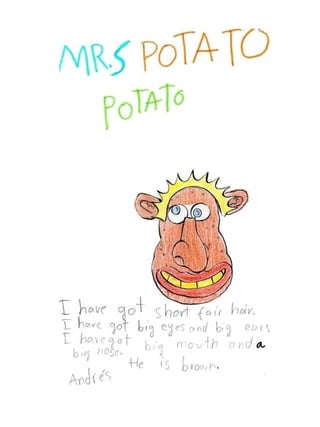 MR.S POTATO
POTATO
I have got short fair hair.
I have got big eyes and big ears
I have got big mouth and a
big nose.
He is brown.
Andrés